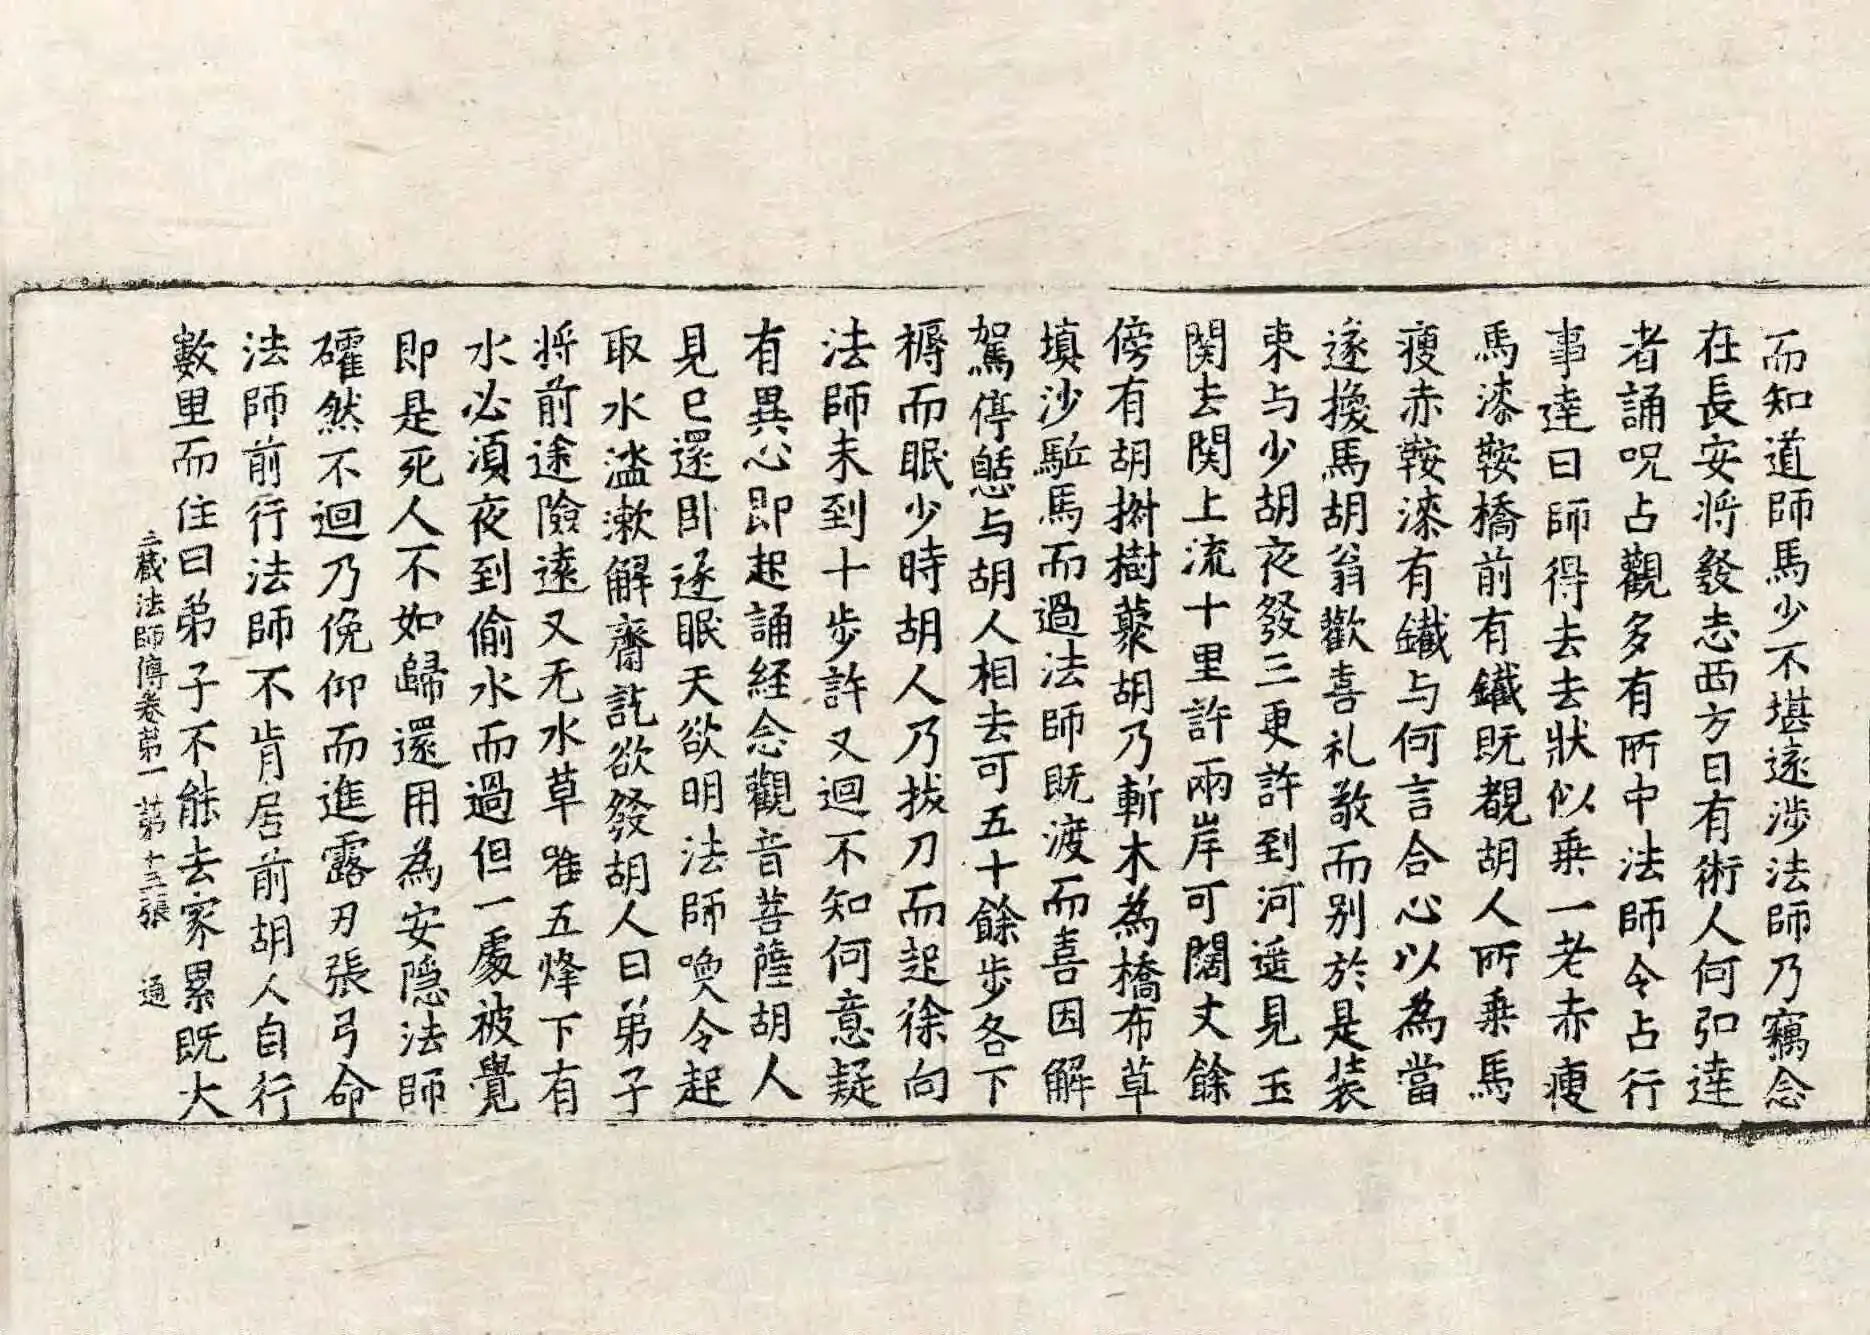 而知道師馬少不堪遠涉法師乃竊念
在長安將發志西方日有術人何弘達
者誦呪占觀多有所中法師令占行
事達曰師得去去狀似乘一老赤瘦
馬漆鞍橋前有鐵既覩胡人所乘馬
瘦赤鞍漆有鐵与何言合心以為當
遂換馬胡翁歡喜礼敬而别於是装
束与少胡夜發三更許到河遥見玉
関去関上流十里許兩岸可闊丈餘
傍有胡樹藂胡乃斬木為橋布草
填沙駈馬而過法師既渡而喜因解
駕停憇与胡人相去可五十餘步各下
褥而眠少時胡人乃拔刀而起徐向
法師未到十步許又迴不知何意疑
有異心即起誦經念觀音菩薩胡人
見已還卧遂眠天欲明法師喚令起
取水盥漱解齋訖欲發胡人曰弟子
將前途險遠又无水草唯五烽下有
水必須夜到偷水而過但一處被覺
即是死人不如歸還用為安隱法師
確然不迴乃俛仰而進露刃張弓命
法師前行法師不肯居前胡人自行
數里而住曰弟子不能去家累既大
三藏法師傳卷第一 第十三張 通